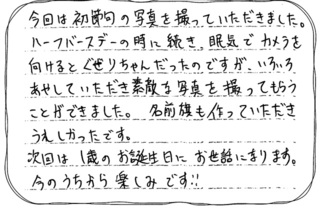 今回は初節句の写真を撮っていただきました。
ハーフバースデーの時に続き、眠気でカメラを
向けるとぐずりちゃんだったのですが、いろいろ
あやしていただき素敵な写真を撮ってもらう
ことができました。 名前旗も作っていただき
うれしかったです。
次回は1歳のお誕生日にお世話になります。
今のうちから楽しみです!!